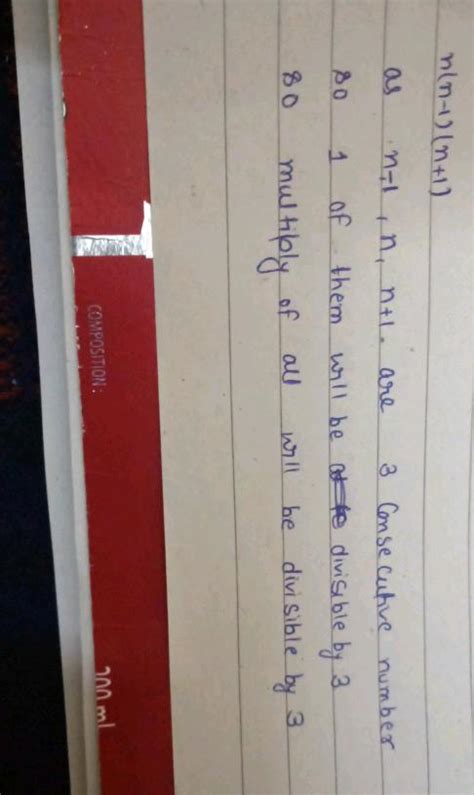 n(n-1)(n+1)
as n-1, n, n+1. are 3 consecutive number
so 1 of them will be divisible by 3
so multiply of all will be divisible by 3
COMPOSITION:
200 ml